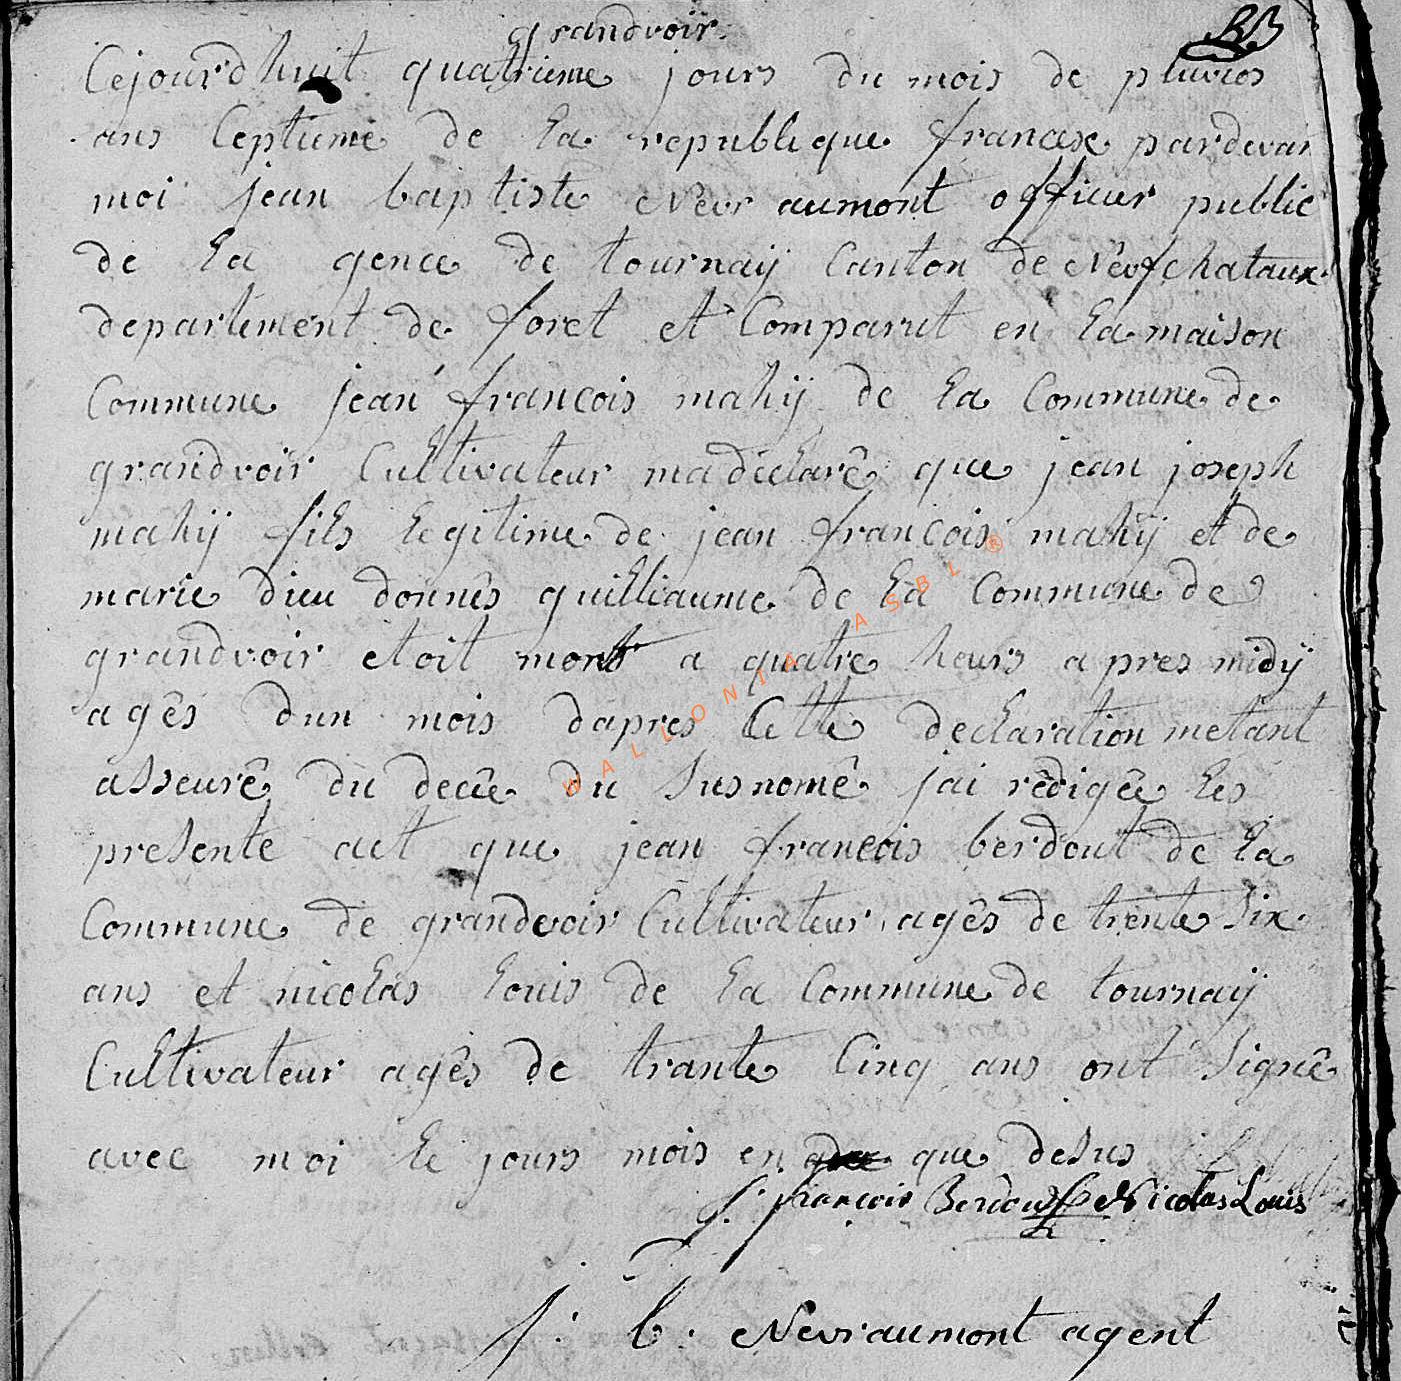 grandvoir.
Cejourdhuit quatrieme jours du mois de pluvios
ans Ceptieme de la republique francex pardevan
moi jean baptiste Nevraumont officier public
de la gence de tournaij Canton de Nêvfchataux
departement de foret et Comparut en la maison
Commune jean francois mahij de la Commune de
grandvoir Cultivateur madéclarê que jean joseph
mahij fils legitime de jean francois mahij et de
marie dieu donnés guilliaume de la Commune de
grandvoir etoit mort a quatre heurs apres midij
agês dun mois dapres Cette declaration metant
asseurê du decêe du Susnomê jai rêdigêe les
presente act que jean francois berdout de la
Commune de grandevoir Cultivateur agês de trente Six
ans et nicolas louis de la Commune de tournaij
Cultivateur agês de trante Cinq ans ont Signê
avec moi le jours mois en que desus
j. francois Nicolas Louis
j: b. Nevraumont agent
WALLONIA ASBL ®